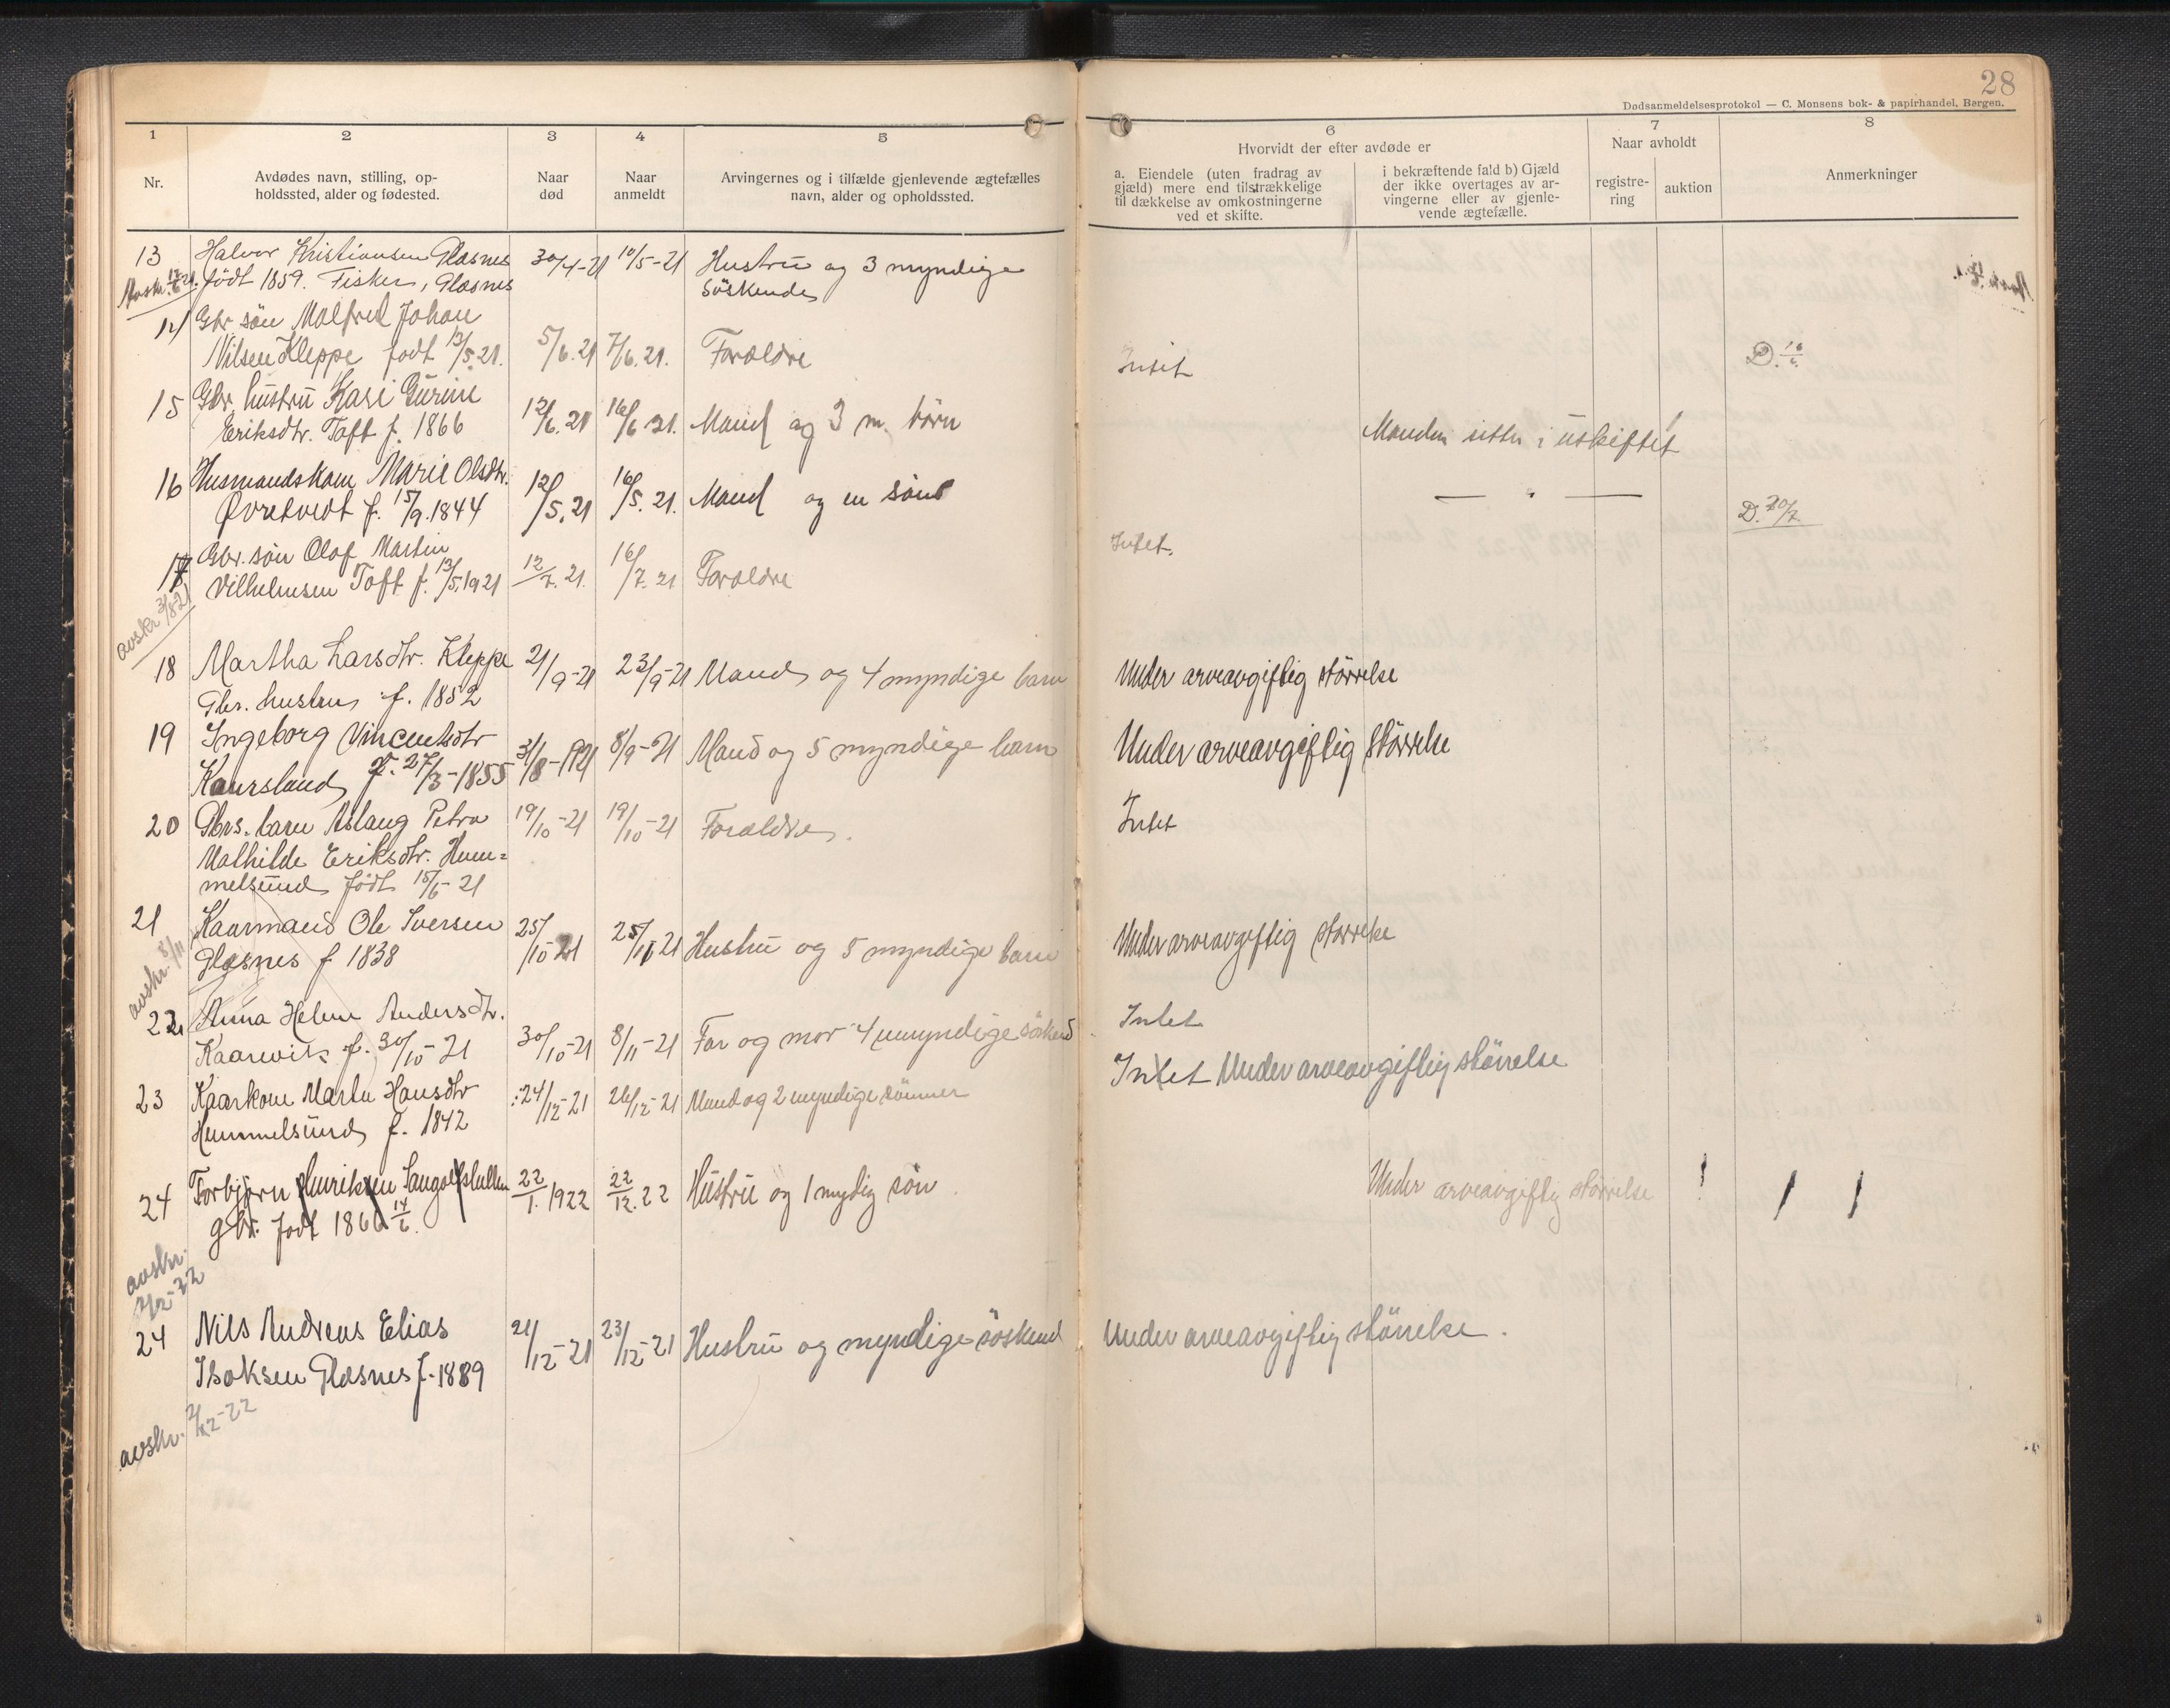 28
Dødsanmeldelsesprotokol — C. Monsens bok- & papirhandel, Bergen.
1
2
3
4
5
6
7
8
Nr.
Avdødes navn, stilling, op-
holdssted, alder og fødested.
Naar
død
Naar
anmeldt
Arvingernes og i tilfælde gjenlevende ægtefælles
navn, alder og opholdssted.
Hvorvidt der efter avdøde er
a. Eiendele (uten fradrag av
gjæld) mere end tilstrækkelige
til dækkelse av omkostningerne
ved et skifte.
i bekræftende fald b) Gjæld
der ikke overtages av ar-
vingerne eller av gjenle-
vende ægtefælle.
Naar avholdt
registre-
ring
auktion
Anmerkninger
13 Halvor Kristiansen Glæsnes 30/4-21 10/5-21 Hustru og 3 myndige
født 1859. Fisker, Glæsnes søskende
14 Gbr søn Malfred Johan
Nilsen Kleppe født 13/5.21. 5/6.21 7/6.21. Forældre Intet
15 Gbr. hustru Kari Gurine
Eriksdtr. Toft f. 1866 12/6.21 16/6.21. Mand og 3 m. børn Manden sitter i uskiftet
16 Husmandskone Marie Olsdtr.
Øvretvedt f. 15/9.1844 12/5.21 16/5.21. Mand og en søn — " —
D. 20/7
17 Gbr. søn Olaf Martin
Vilhelmsen Toft f. 13/5.1921 12/7.21. 16/7.21 Forældre Intet.
avskr 3/8 21
18 Martha Larsdtr. Kleppe 21/9-21 23/9-21 Mand og 4 myndige barn Under arveavgiftig størrelse
Gbr. hustru f. 1852
19 Ingeborg Vincentsdtr
Kaursland f. 27/3-1855 31/8-1921 8/9-21 Mand og 5 myndige barn Under arveavgiftig størrelse
20 Gbrs. barn Aslaug Petra 19/10-21 19/10-21 Forældre. Intet
Mathilde Eriksdtr. Hum=
melsund født 15/6-21
21 Kaarmand Ole Iversen
Glæsnes f 1838 25/10 21 25/10 21 Hustru og 5 myndige barn Under arveavgiftig størrelse
avskr 8/11
22 Anna Helene Andersdtr.
Kaarevik f. 30/10-21 30/10-21 8/11-21 Far og mor 4 umyndige søskend Intet
23 Kaarkone Marta Hansdtr 24/12-21 26/12-21 Mand og 2 myndige sønner Intet Under arveavgiftig størrelse
Hummelsund f. 1842
24 Torbjørn Henriksen 22/1.1922 22/12.22 Hustru og 1 myndig søn Under arveavgiftig størrelse
gbr. født 1866 14/6.
avskr.
2/12-22
24 Nils Andreas Elias
Isaksen Glæsnes f. 1889 21/12-21 23/12-21 Hustru og myndige søskend Under arveavgiftig størrelse.
avskr. 2/12-22